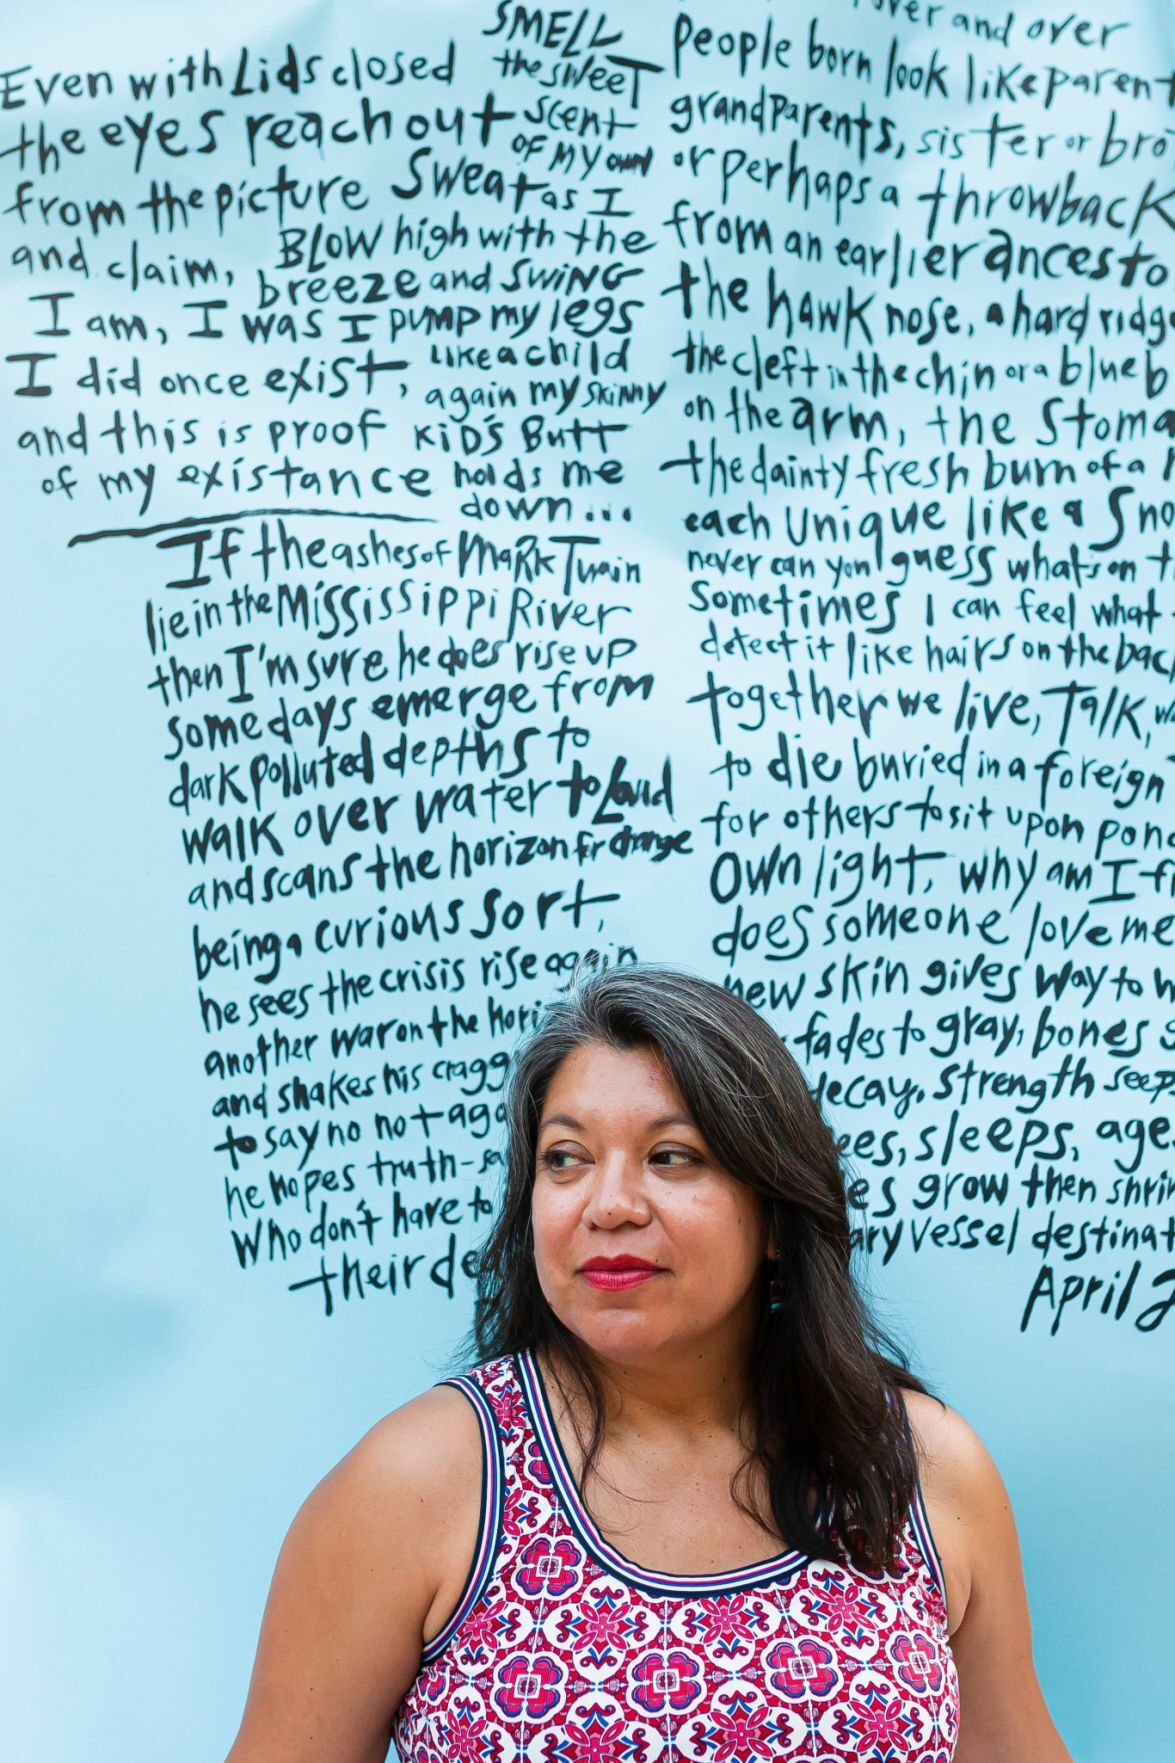 Even with Lids closed
the eyes reach out
from the picture
and claim,
I am, I was
I did once exist,
and this is proof
of my existance
SMELL
the sweet
scent
of my own
Sweat as I
BLOW high with the
breeze and SWING
I pump my legs
like a child
again my skinny
KID'S BUTT
holds me
down...
If the ashes of Mark Twain
lie in the Mississippi River
then I'm sure he does rise up
some days emerge from
dark polluted depths to
walk over water to Land
and scans the horizon for change
being a curious sort,
he sees the crisis rise again
another war on the hori
and shakes his cragg
to say no not aga
he hopes truth-sa
who don't have to
their de
over and over
People born look like parent
grandparents, sister or bro
or perhaps a throwback
from an earlier ancesto
the hawk nose, a hard ridge
the cleft in the chin or a blue b
on the arm, the Stoma
the dainty fresh burn of a
each unique like a Sno
never can you guess what's on t
Sometimes I can feel what
detect it like hairs on the bac
together we live, Talk, w
to die buried in a foreign
for others to sit upon pond
own light, why am I
does someone love me
new skin gives way to w
fades to gray, bones
decay, strength seep
ees, sleeps, age
es grow then shrin
ary vessel destinat
April 2